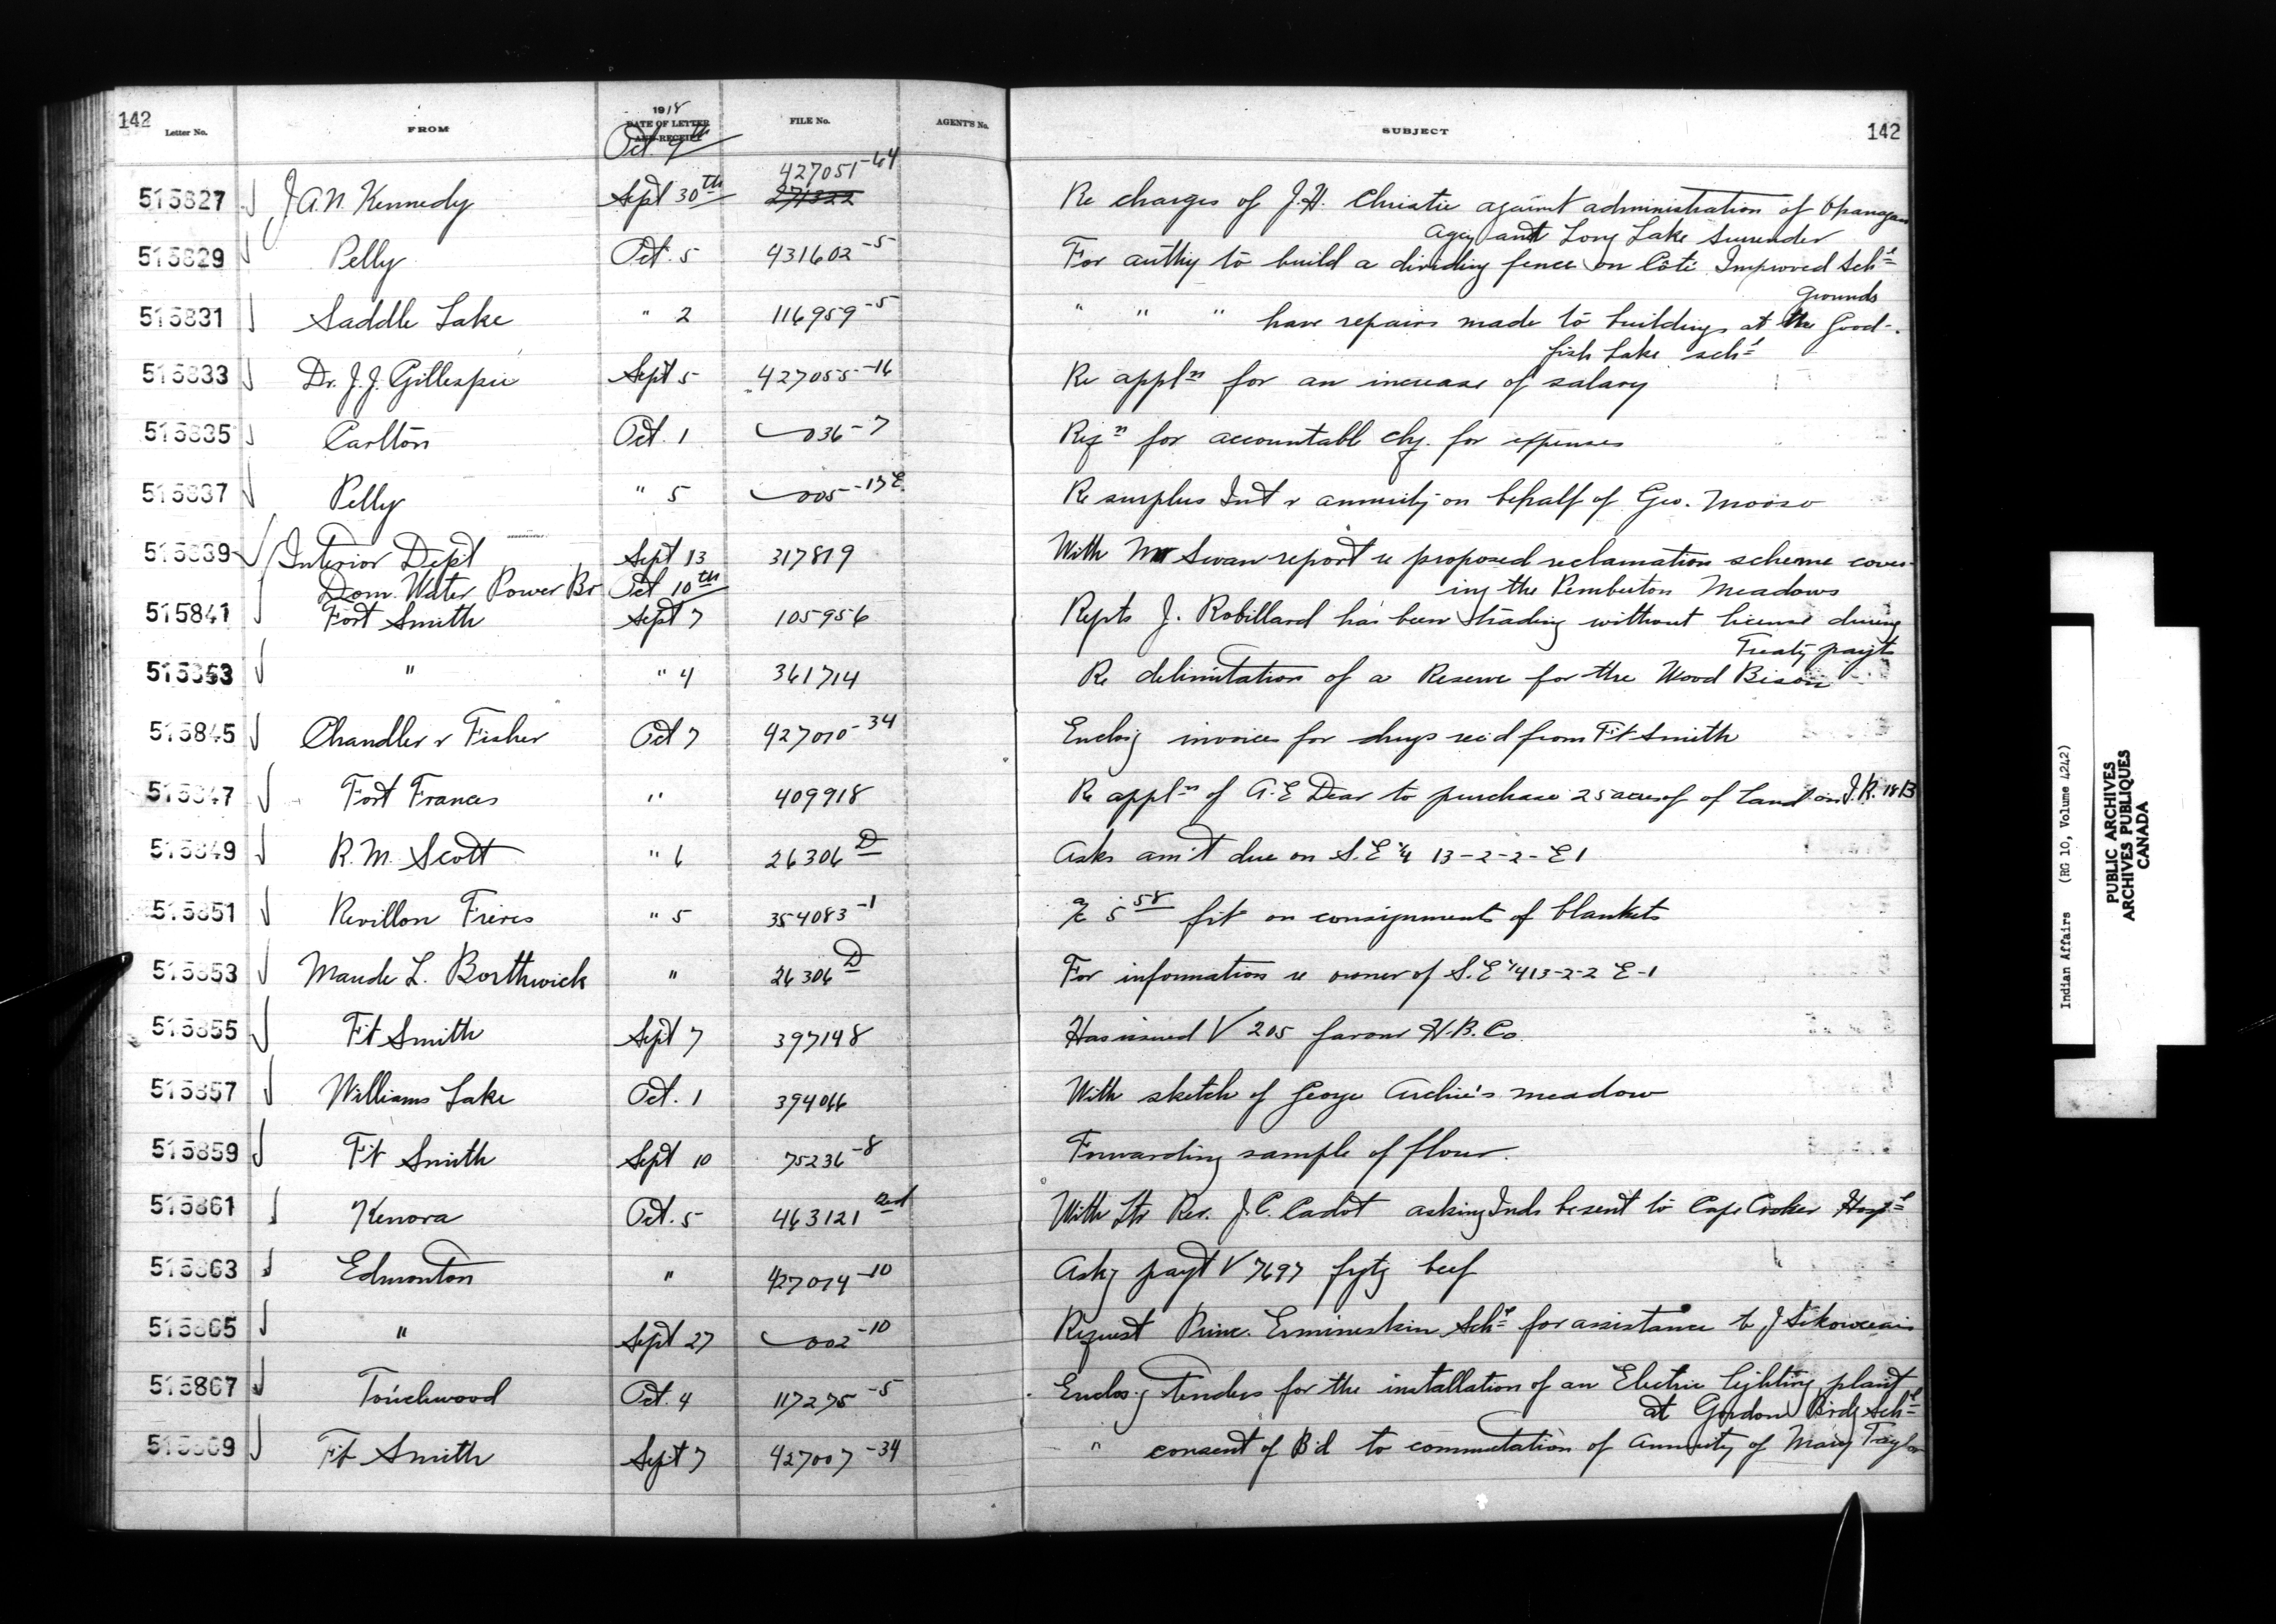 142 Letter No. FROM 1918 DATE OF LETTER AND RECEIPT FILE No. AGENT'S No. SUBJECT 142
Oct. 9th
427051-64
515827 J A.N. Kennedy Sept 30th 271322 Re charges of J.H. Christie against administration of Okanagan
Agcy and Long Lake Surrender
515829 Pelly Oct. 5 431602-5 For authty to build a dividing fence on Côté Improved Schl
Grounds
515831 Saddle Lake " 2 116959-5 " " " have repairs made to buildings at the Good-
fish Lake schl
515833 Dr. J.J. Gillespie Sept 5 427055-16 Re appln for an increase of salary
515835 Carlton Oct. 1 036-7 Reqn for accountable chq. for expenses
515837 Pelly " 5 005-13E Re surplus Int & annuity on behalf of Geo. Mooso
515839 Interior Dept Sept 13 317819 With Mr Swan report re proposed reclamation scheme cover-
Dom. Water Power Br Oct 10th ing the Pemberton Meadows
515841 Fort Smith Sept 7 105956 Repts J. Robillard has been trading without license during
Treaty payts
515843 " " 4 361714 Re delimitation of a Reserve for the Wood Bison
515845 Chandler & Fisher Oct 7 427010-34 Enclosg invoices for drugs recd from Ft Smith
515847 Fort Frances " 409918 Re appln of A.E Dear to purchase 25 acres of of Land on I.R. 18B
515849 R.M. Scott " 6 26306 D Asks am't due on S.E 1/4 13-2-2-E1
515851 Revillon Freres " 5 354083-1 a/c 5 58 frt on consignment of blankets
515853 Maude L. Borthwick " 26306 D For information re owner of S.E 1/4 13-2-2 E-1
515855 Ft Smith Sept 7 397148 Has issued V 205 favour H.B.Co.
515857 Williams Lake Oct. 1 394066 With sketch of George Archie's meadow
515859 Ft Smith Sept 10 75236-8 Forwarding sample of flour.
515861 Kenora Oct. 5 463121 2nd With ltr Rev. J.C. Cadot asking Inds be sent to Cape Croker Hospl
515863 Edmonton " 427014-10 Askg payt V 7697 beef
515865 " Sept 27 002-10 Request Princ. Ermineskin Schl for assistance to J
515867 Touchwood Oct. 4 117275-5 Enclosg Tenders for the installation of an Electric lighting plant
at Gordons Brdg Schl
515869 Ft Smith Sept 7 427007-34 " consent of B'd to commutation of Annuity of Mary Taylor
Indian Affairs (RG 10, Volume 4242)
PUBLIC ARCHIVES
ARCHIVES PUBLIQUES
CANADA